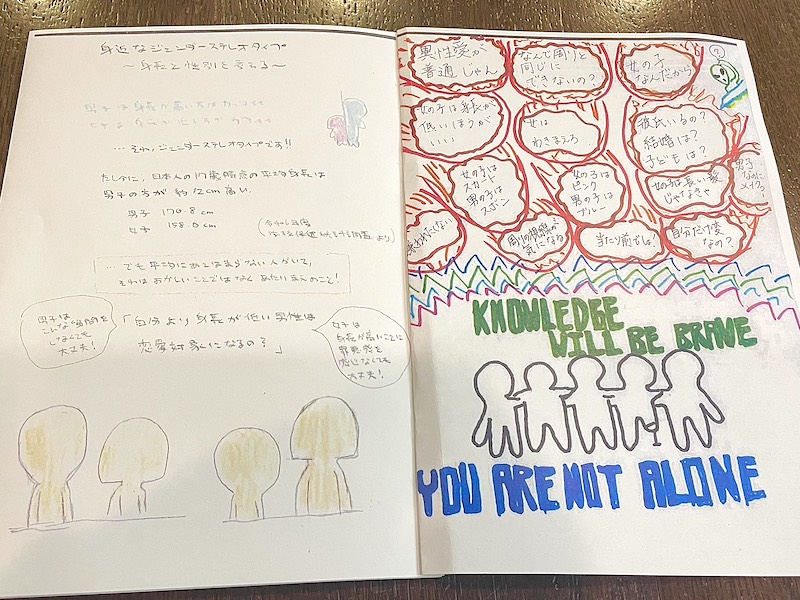 身近なジェンダーステレオタイプ
〜身長と性別を変える〜
男子は身長が高い方が
女子は
…それ、ジェンダーステレオタイプです!!
たしかに、日本人の17歳時点の平均身長は
男子の方が約12cm高い。
男子 170.8cm
女子 158.0cm
…でも平均にあてはまらない人がいて、
それはおかしいことではなくあたりまえのこと!
男子は
こんな質問を
しなくても
大丈夫!
「自分より身長が低い男性は
恋愛対象になるの?」
女子は
身長が高いことに
罪悪感を
感じなくても
大丈夫!
異性愛が
普通じゃん
なんで周りと
同じに
できないの?
女の子
なんだから
?
女の子は身長が
低いほうが
いい
女は
わきまえろ
彼氏いるの?
結婚は?
子どもは?
女の子は
スカート
男の子は
ズボン
女の子は
ピンク
男の子は
ブルー
女の子は長い髪
じゃなきゃ
男子
なのに
メイク?
嫌われたくない
周りの視線が
気になる
当たり前でしょ!
自分だけ変
なの?
KNOWLEDGE
WILL BE BRAVE
YOU ARE NOT ALONE